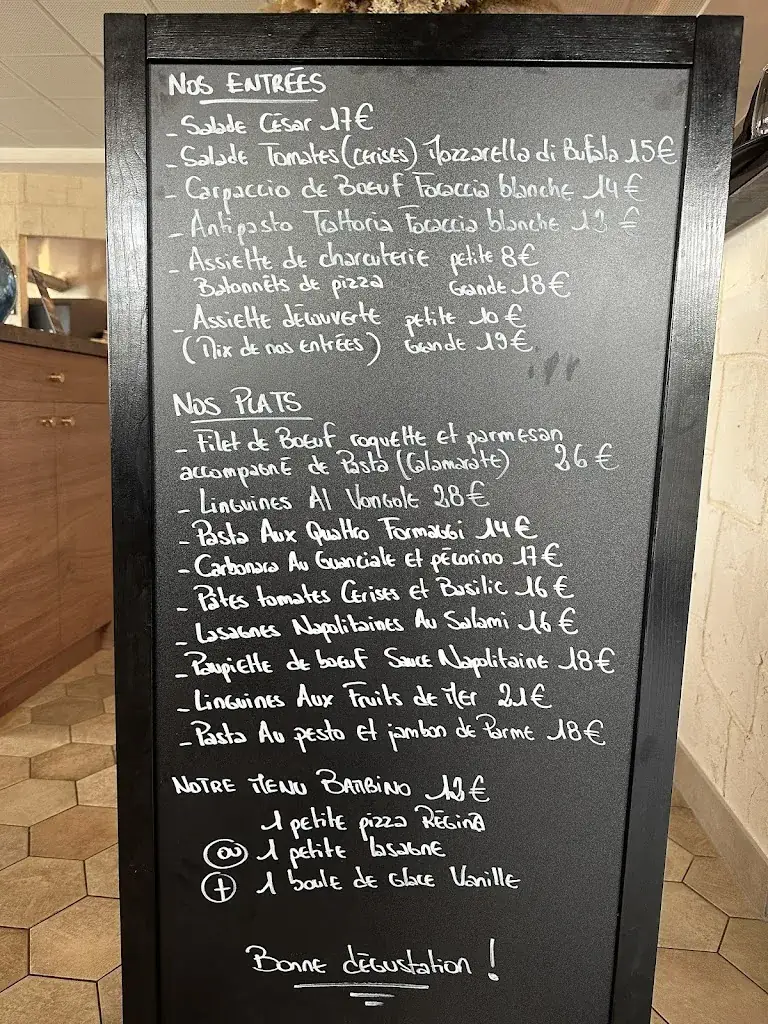 Nos Entrées
- Salade César 17€
- Salade Tomates (cerises) Mozzarella di Bufala 15€
- Carpaccio de Boeuf Focaccia blanche 14€
- Antipasto Trattoria Focaccia blanche €
- Assiette de charcuterie petite 8€
Batonnêts de pizza Grande 18€
- Assiette découverte petite 10€
(Mix de nos entrées) Grande 19€
Nos Plats
- Filet de Boeuf roquette et parmesan
accompagné de Pasta (Calamarate) 26€
- Linguines Al Vongole 28€
- Pasta Aux Quattro Formaggi 14€
- Carbonara Au Guanciale et pécorino 17€
- Pâtes tomates Cerises et Basilic 16€
- Lasagnes Napolitaines Au Salami 16€
- Paupiette de boeuf Sauce Napolitaine 18€
- Linguines Aux Fruits de Mer 21€
- Pasta Au pesto et jambon de Parme 18€
Notre Menu Bambino €
1 petite pizza Régina
ou 1 petite lasagne
+ 1 boule de Glace Vanille
Bonne dégustation !